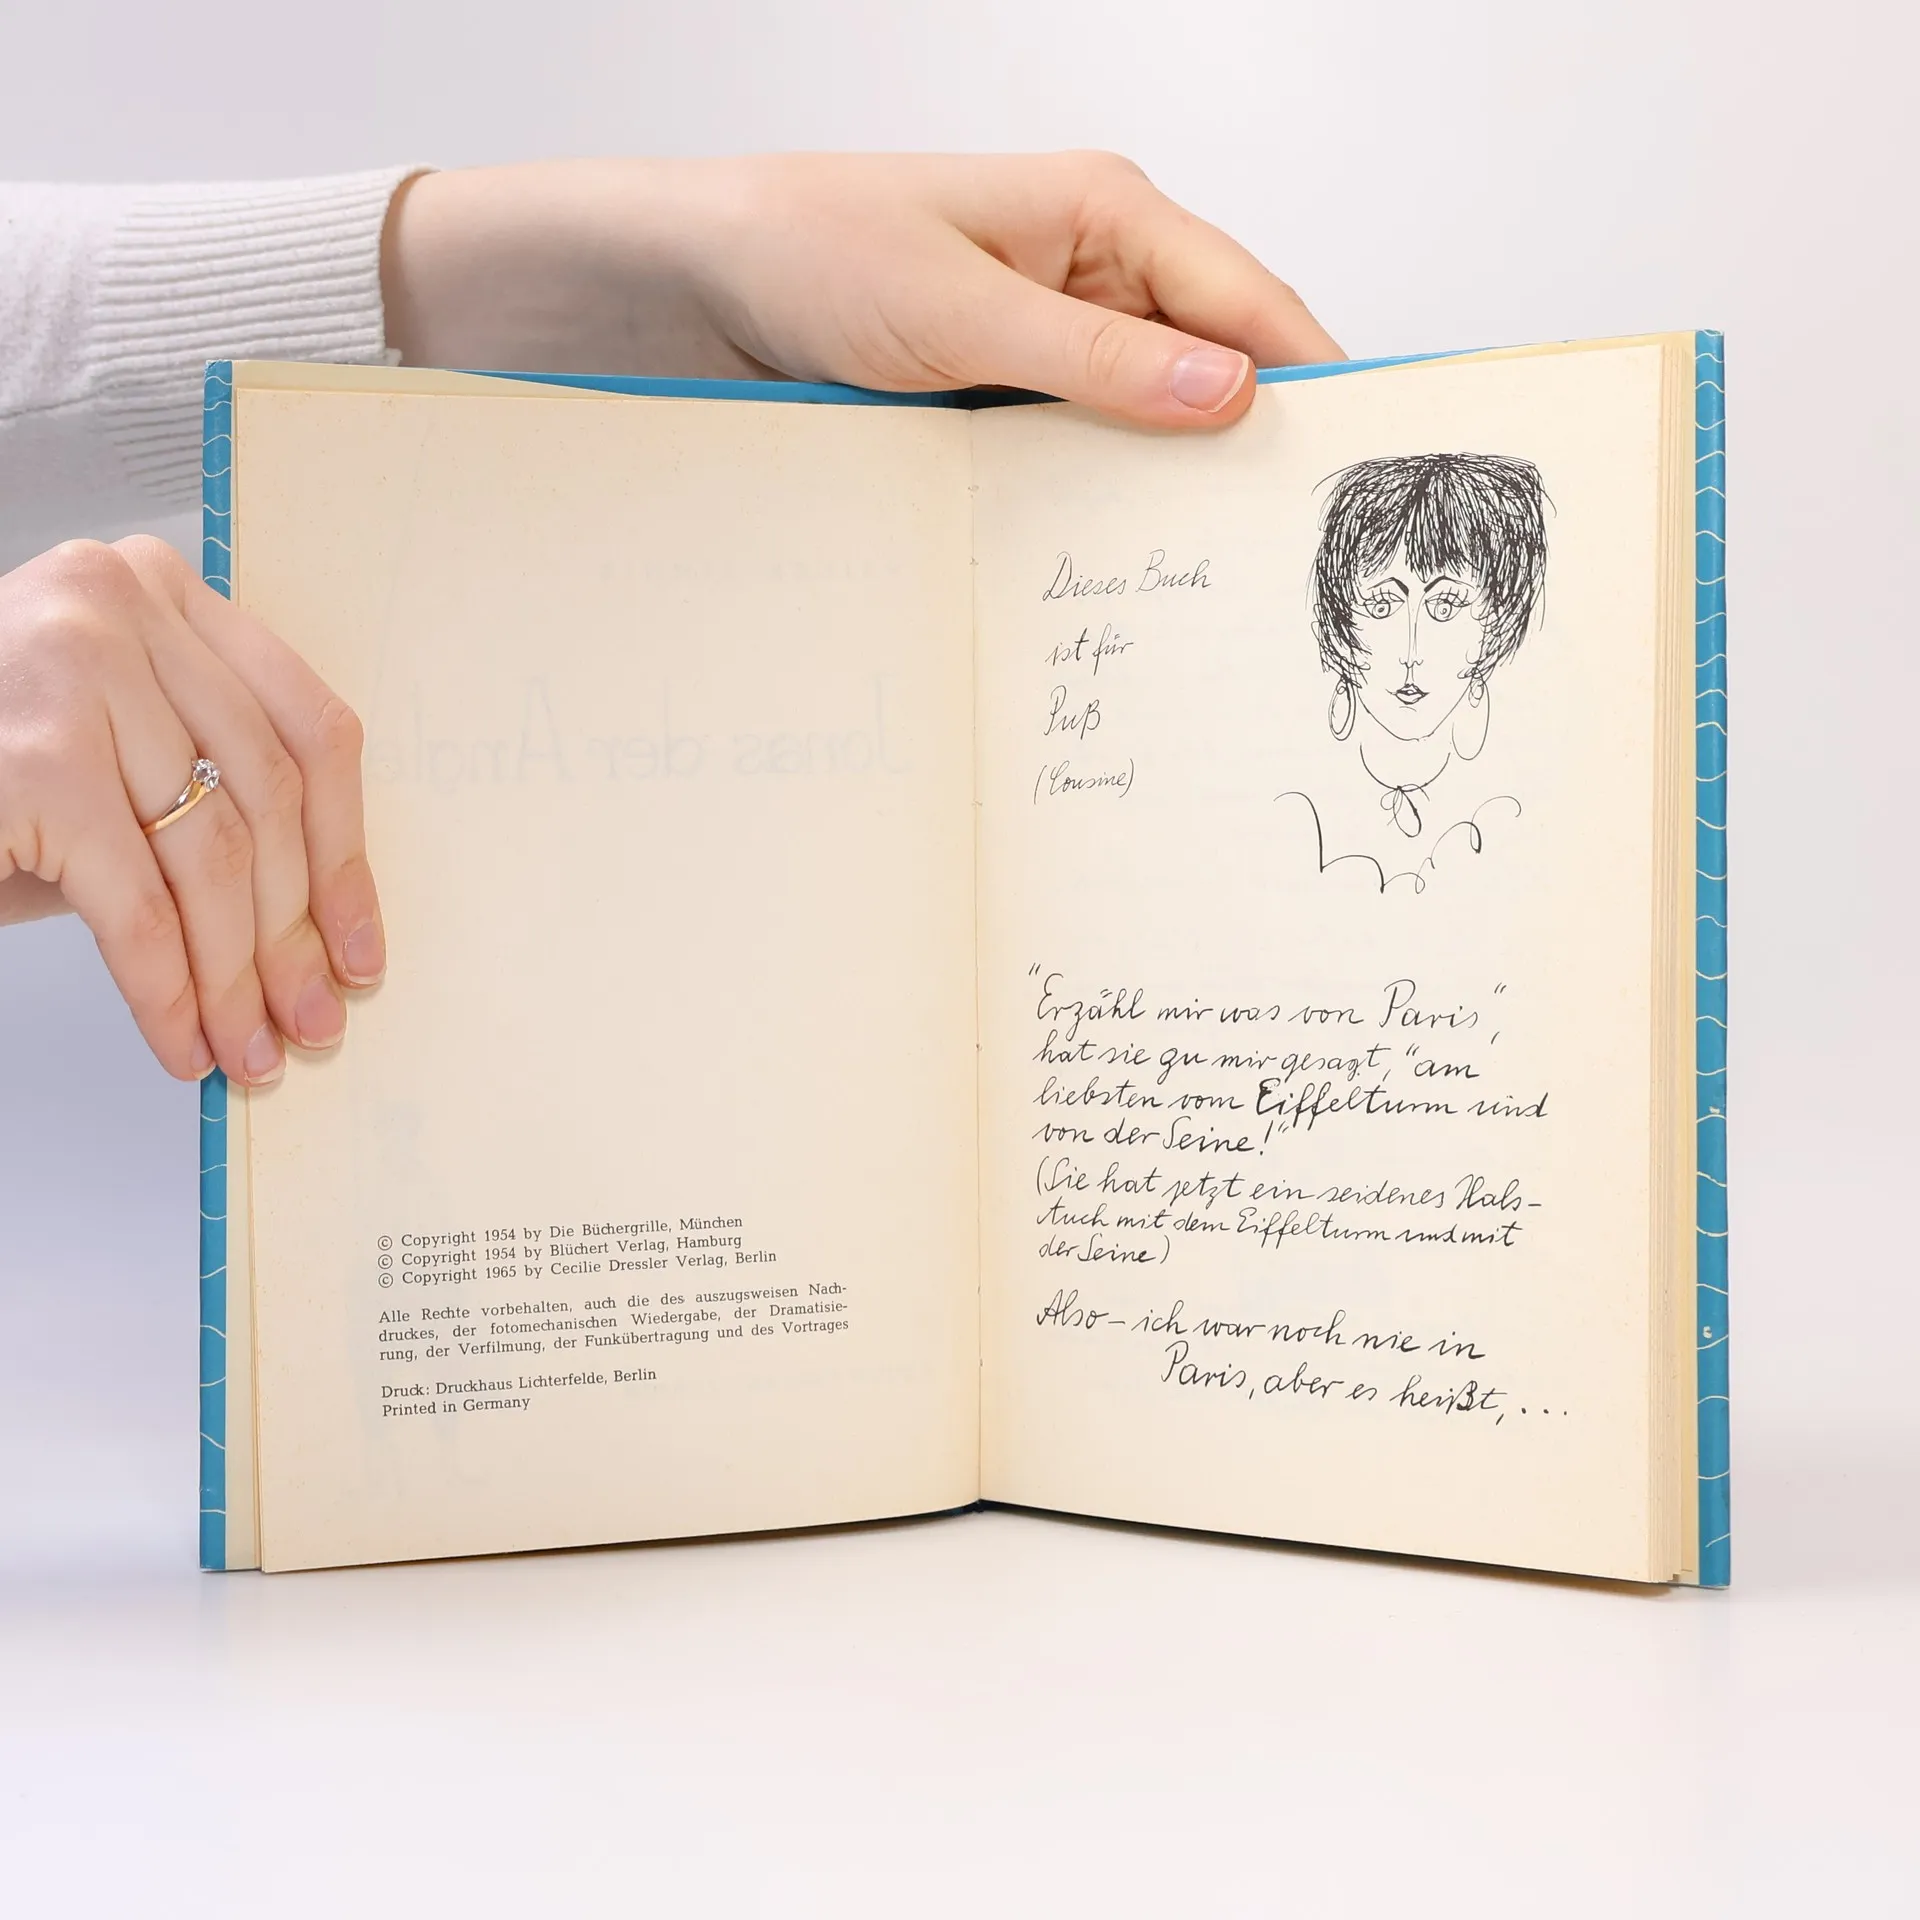 © Copyright 1954 by Die Büchergrille, München
© Copyright 1954 by Blüchert Verlag, Hamburg
© Copyright 1965 by Cecilie Dressler Verlag, Berlin
Alle Rechte vorbehalten, auch die des auszugsweisen Nach-
druckes, der fotomechanischen Wiedergabe, der Dramatisie-
rung, der Verfilmung, der Funkübertragung und des Vortrages
Druck: Druckhaus Lichterfelde, Berlin
Printed in Germany
Dieses Buch
ist für
Puß
(Cousine)
"Erzähl mir was von Paris",
hat sie zu mir gesagt, "am
liebsten vom Eiffelturm und
von der Seine!"
(Sie hat jetzt ein seidenes Hals-
tuch mit dem Eiffelturm und mit
der Seine)
Also – ich war noch nie in
Paris, aber es heißt, ...